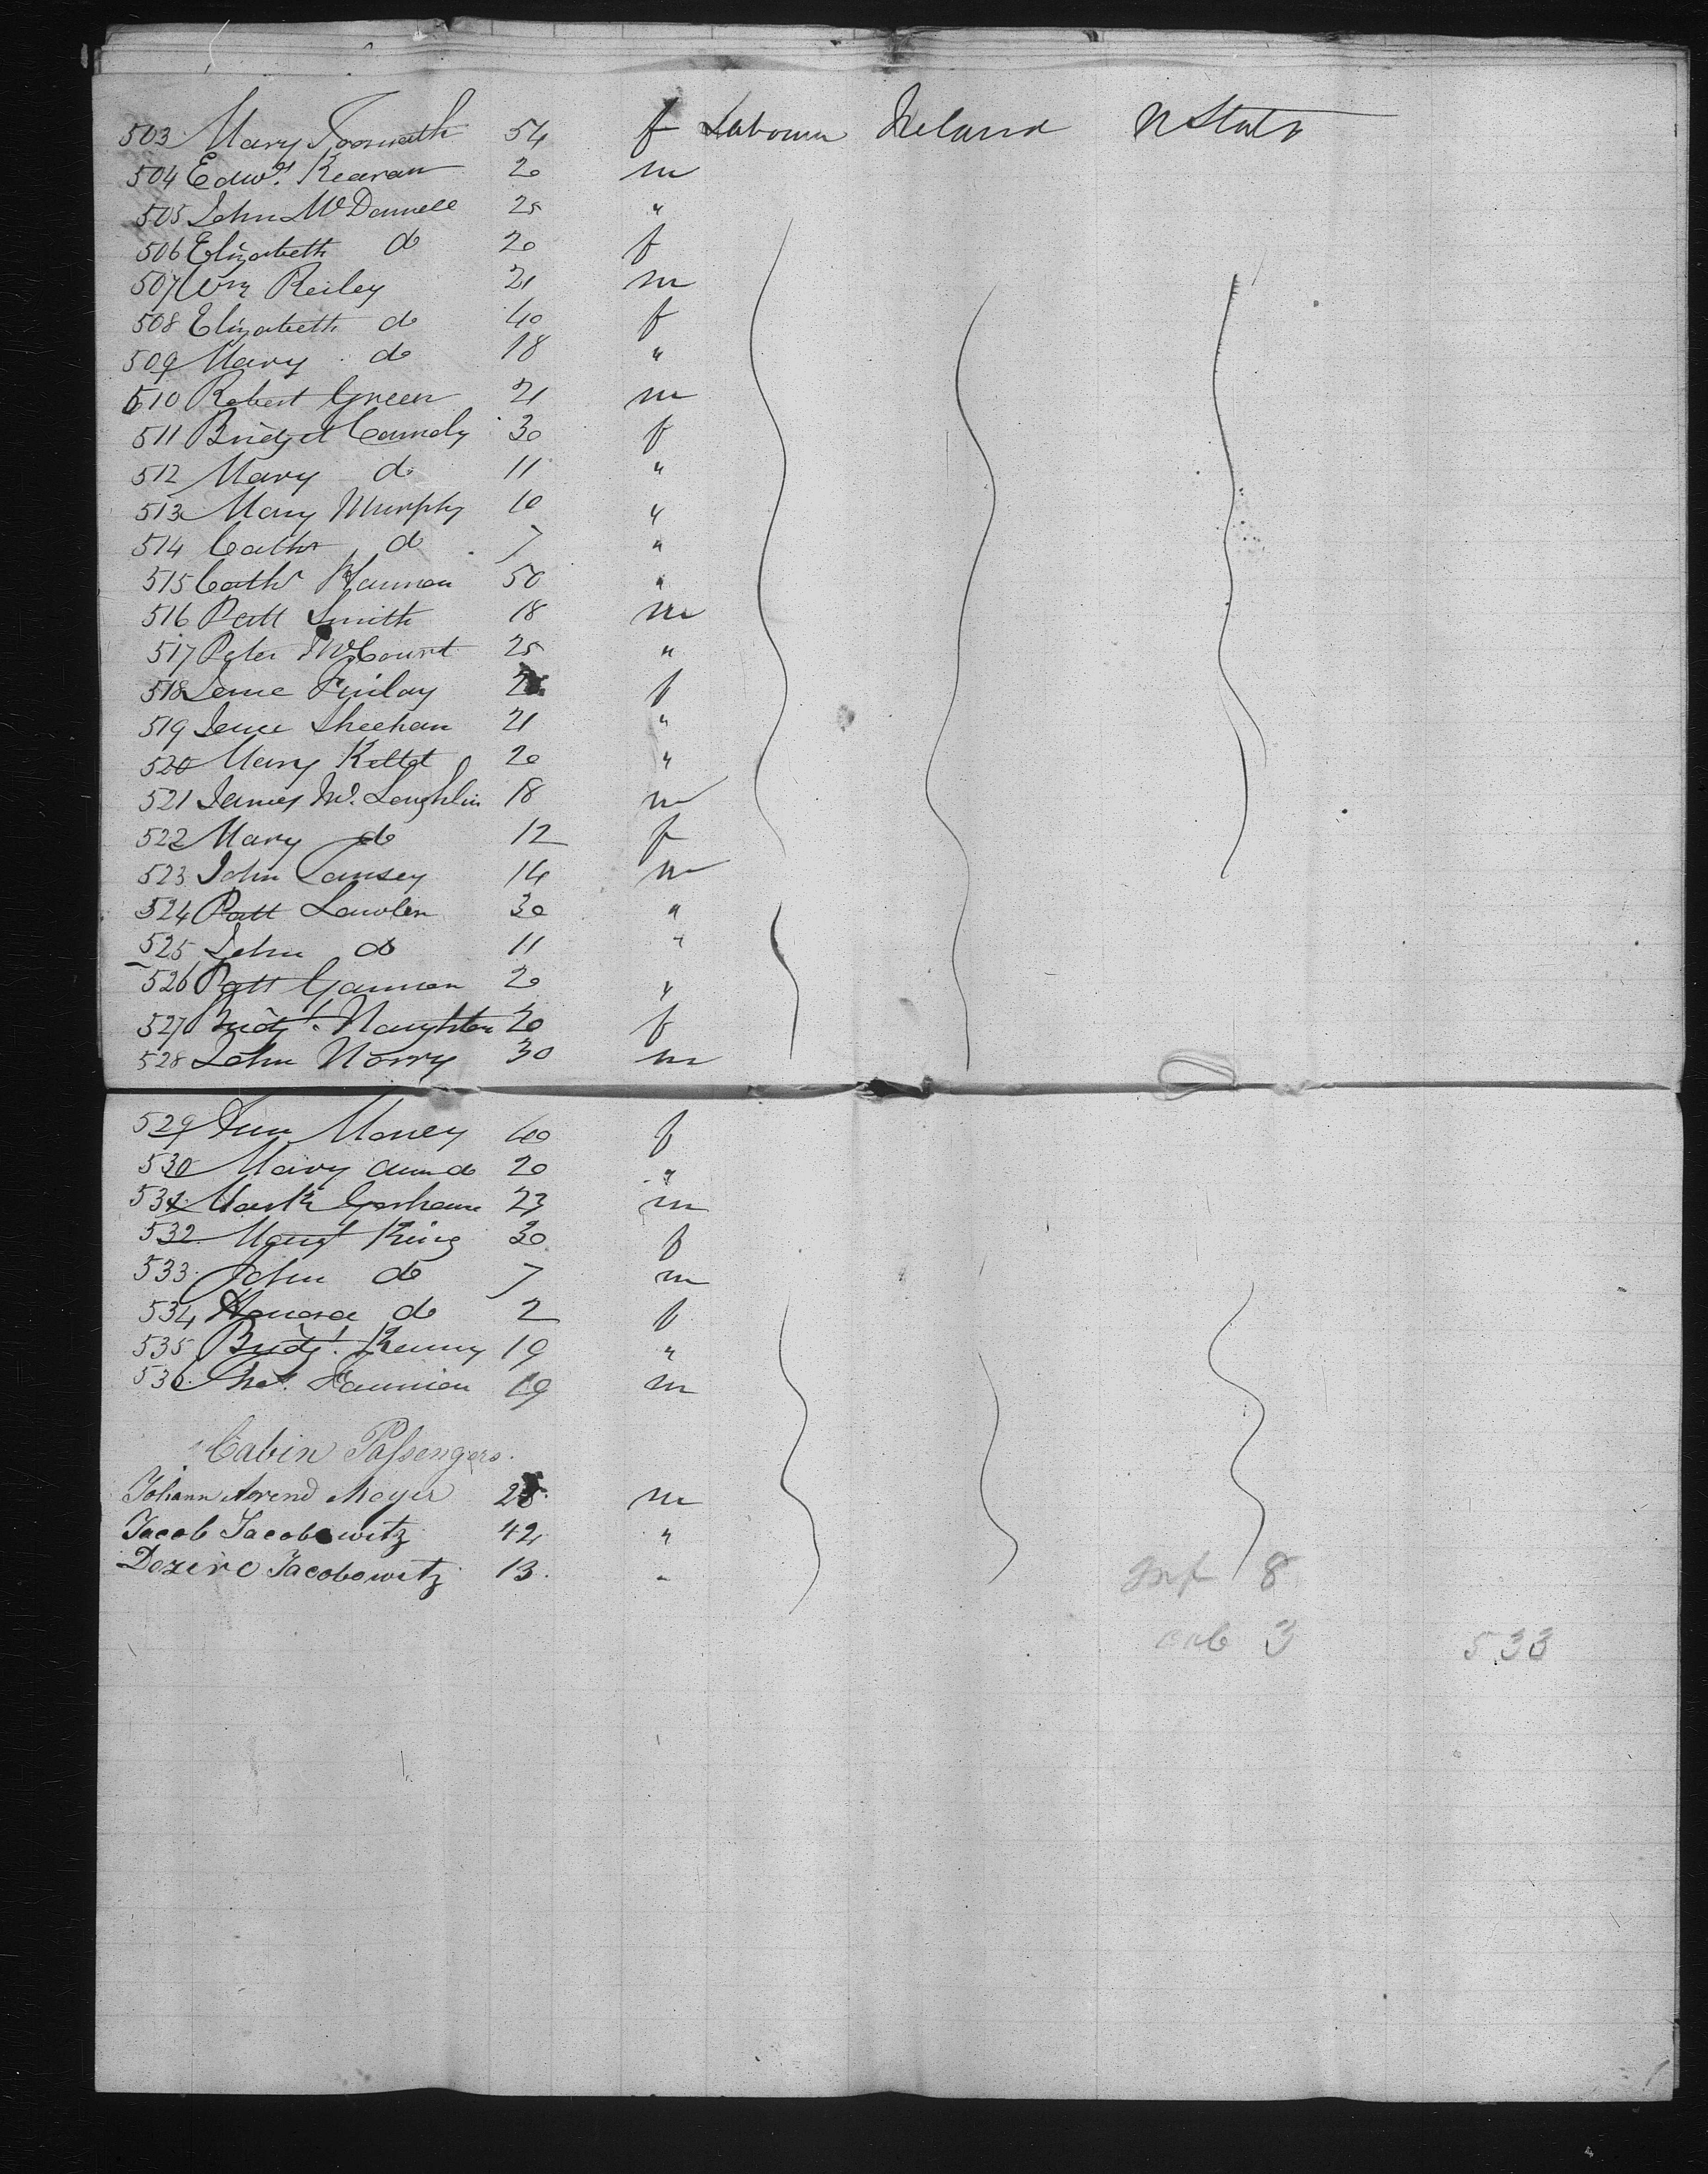 503 Mary 54 f Labourer Ireland U States
504 Edwd. Kearan 20 m
505 John McDonnell 25 "
506 Elizabeth do 20 f
507 Wm Reiley 21 m
508 Elizabeth do 40 f
509 Mary do 18 "
510 Robert Green 21 m
511 Bridget Connoly 30 f
512 Mary do 11 "
513 Mary Murphy 10 "
514 Cathr do 7 "
515 Cathr Hannon 50 "
516 Patt Smith 18 m
517 Peter McCourt 25 "
518 Jane Finlay f
519 Jane Sheehan 21 "
520 Mary Kellet 20 "
521 James Mc.Loughlin 18 m
522 Mary do 12 f
523 John Tansey 14 m
524 Patt Lawlen 30 "
525 John do 11 "
526 Patt Gannon 20 "
527 Bridgt. Naughton 20 f
528 John Norry 30 m
529 Ann Money 40 f
530 Mary Ann do 20 "
531 Mark Gorham 23 m
532 Margt King 30 f
533 John do 7 m
534 Honora do 2 f
535 Bridgt. Kenny 19 "
536 Thos. Hannion 19 m
Cabin Passengers.
Johann Arend Meyer 25 m
Jacob Jacobowitz 42 "
Dezire Jacobowitz 13. "
Inf 8
cab 3 533